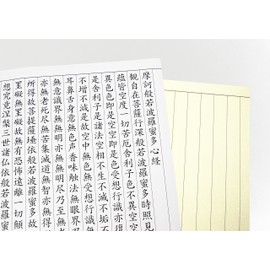 摩訶般若波羅蜜多心經
觀自在菩薩行深般若波羅蜜多時照見
蘊皆空度一切苦厄舍利子色不異空空
異色色即是空空即是色受想行識亦
是舍利子是諸法空相不生不滅不垢
不增不減是故空中無色無受想行識
耳鼻舌身意無色聲香味觸法無眼界
無意識界無無明亦無無明盡乃至無
亦無老死盡無苦集滅道無智亦無得
所得故菩提薩埵依般若波羅蜜多故
罣礙無罣礙故無有恐怖遠離一切顛
想究竟涅槃三世諸仏依般若波羅蜜多